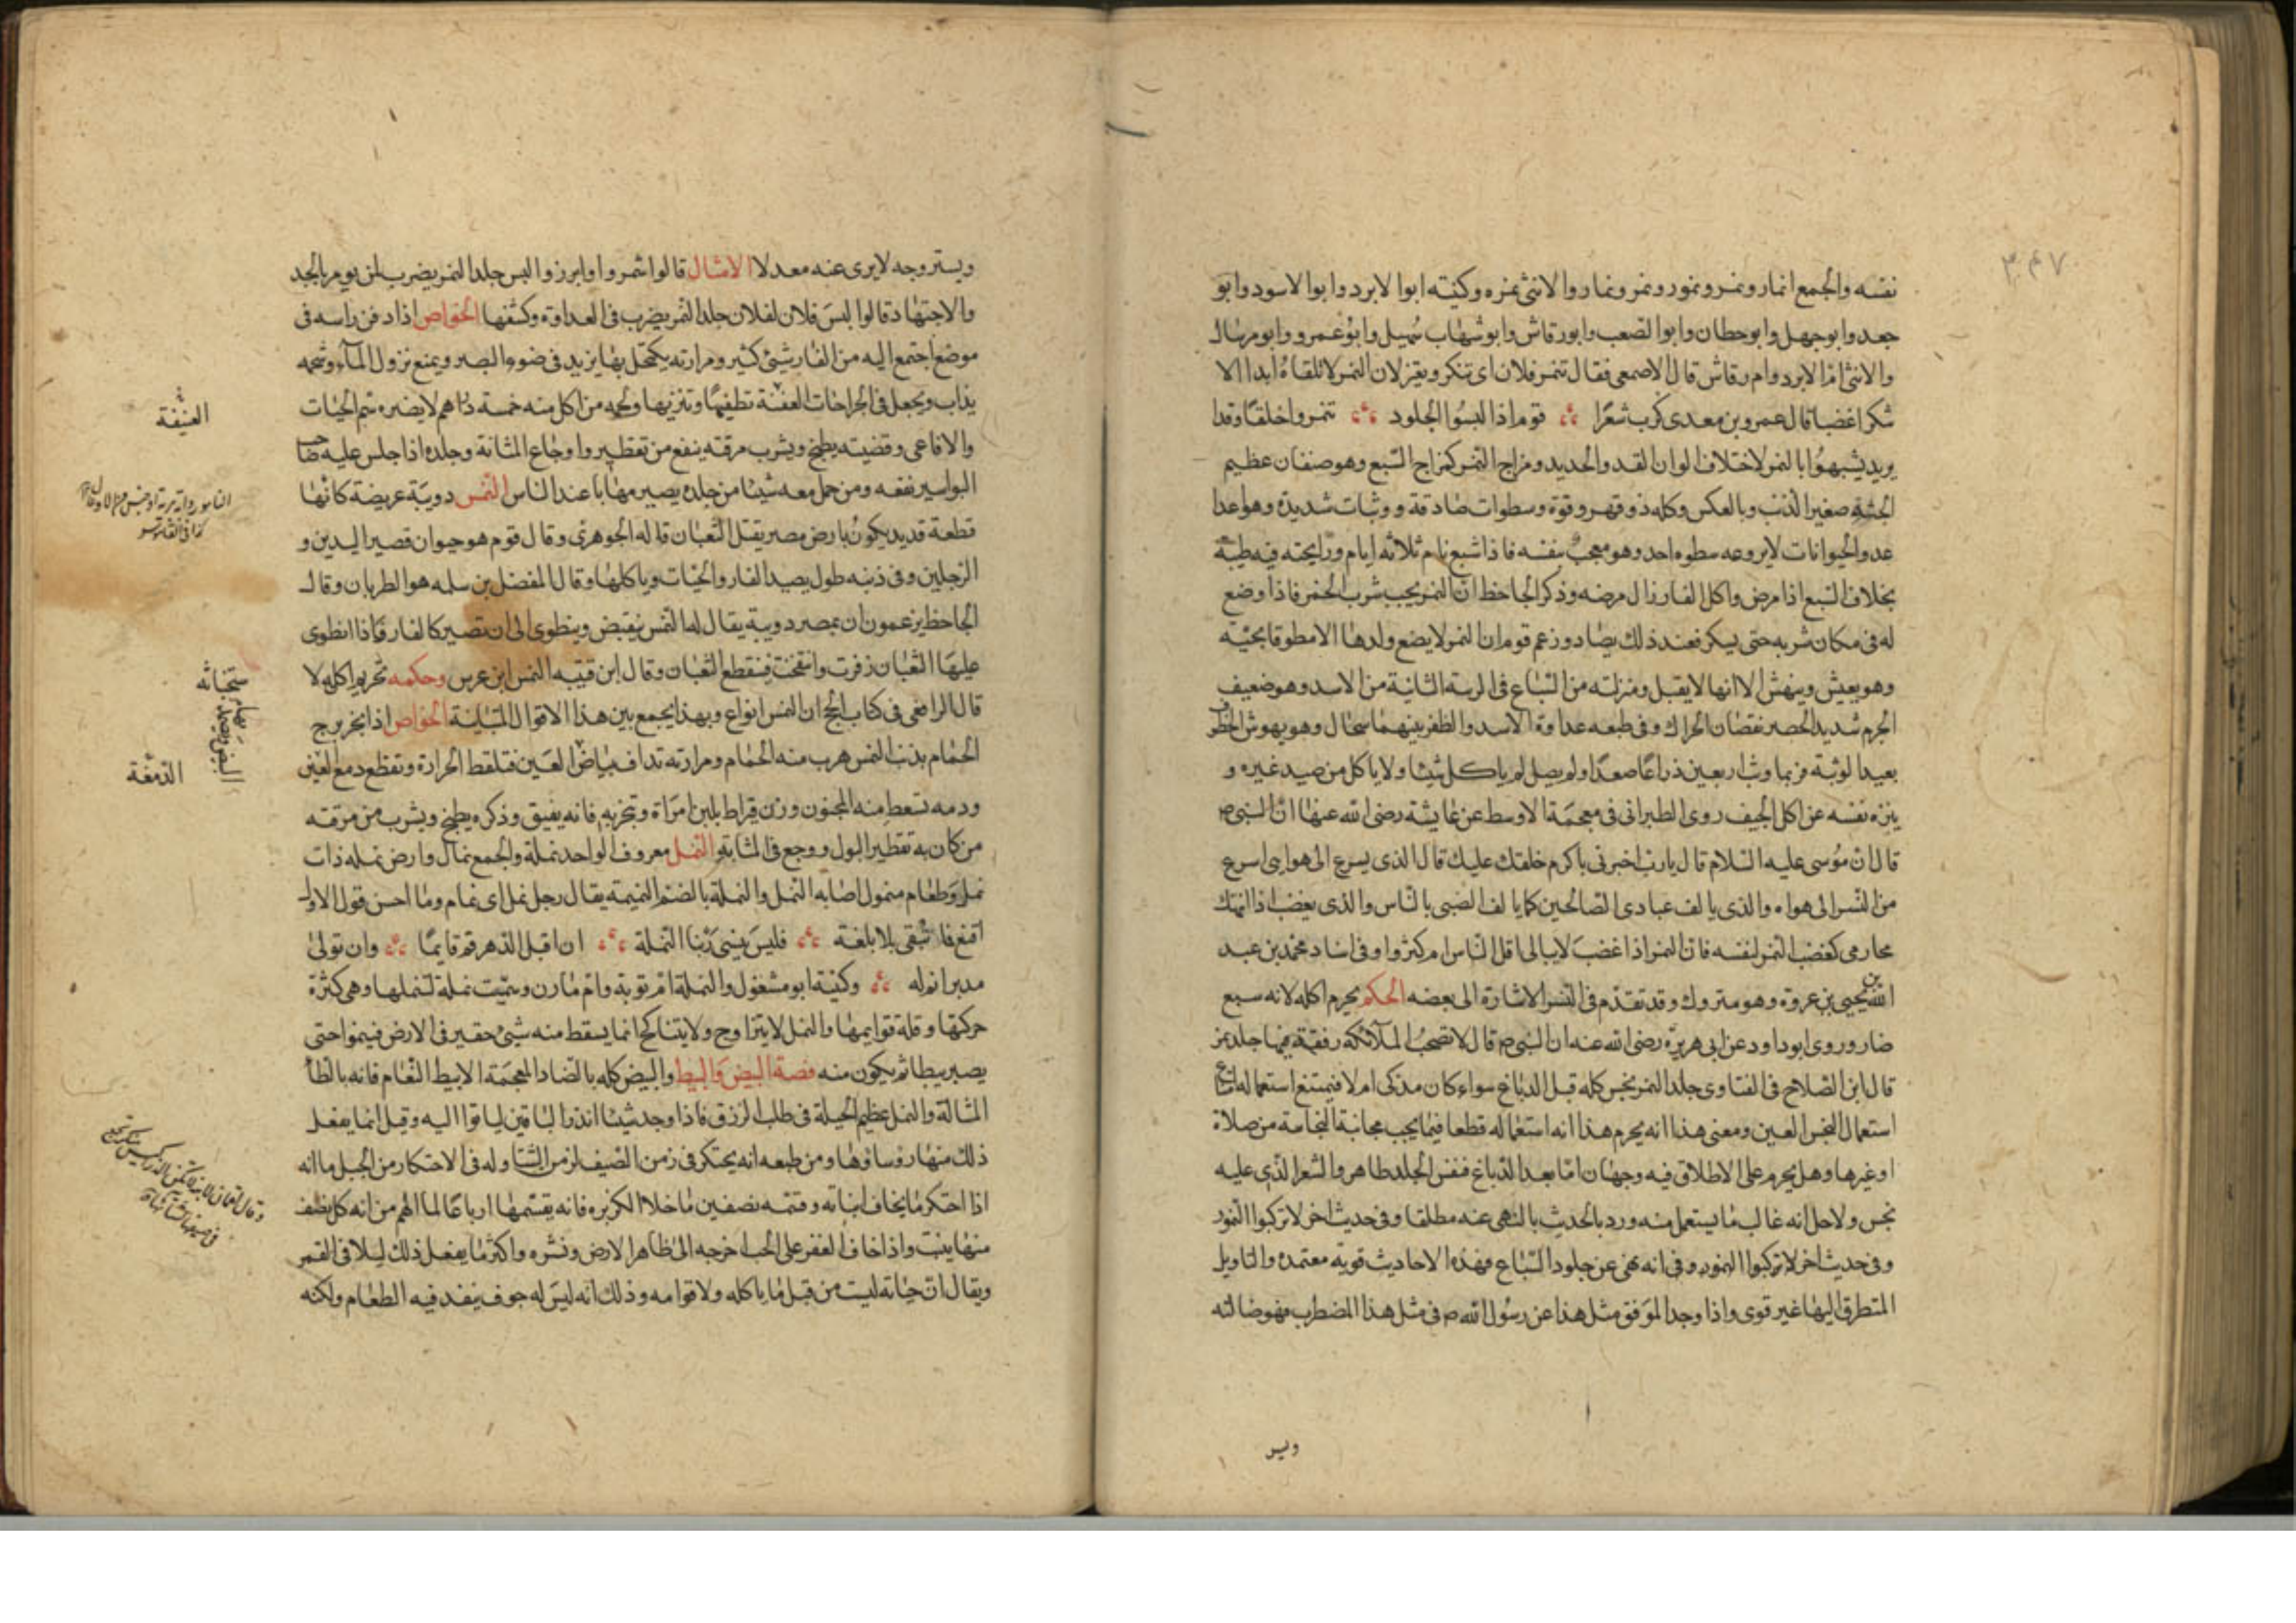 ٣٤٧
نفسه والجمع انمار ونمر ونمور ونمر ونمار والانثى نمره وكنيته ابوا الابرد وابوا الاسود وابو
جعد وابو جهل وابو حطان وابوا الصعب وابو رقاش وابو شهاب سهيل وابو عمرو وابو مرسال
والانثى ام الابرد وام رقاش قال الاصمعى فقال تنمر فلان اى تنكر وتغير لان النمر لا تلقاه ابدا الا
شكرا غضبا قال عمرو بن معدى كرب شعرا قوم اذا لبسوا الجلود تنمروا خلقا وقدا
يريد يشبهوا بالنمر لاختلاف الوان القد والحديد ومزاج النمر كمزاج السبع وهو صنفان عظيم
الجثة صغير الذنب وبالعكس وكله ذو قهر وقوة وسطوات صادقة ووثبات شديدة وهو اعدا
عدو الحيوانات لا يروعه سطوه احد وهو معجب بنفسه فاذا شبع نام ثلاثه ايام ورايحته فيه طيبة
بخلاف السبع اذا مرض واكل الفار زال مرضه وذكر الجاحظ ان النمر يحب شرب الخمر فاذا وضع
له فى مكان شربه حتى يسكر فعند ذلك يصاد وزعم قوم ان النمر لا يضع ولدها الا مطوقا بحية
وهو يعيش وينهش الا انها لا يقبل ومنزلته من السباع فى الرتبة الثانية من الاسد وهو ضعيف
الجرم شديد الحصر نقصان الحراك وفى طبعه عداوة الاسد والظفر بينهما سجال وهو بهوش الخطر
بعيد الوثبة فربما وثب اربعين ذراعا صعدا ولم يصل لم ياكل شيئا ولا ياكل من صيد غيره و
ينزه نفسه عن اكل الجيف روى الطبرانى فى معجمة الاوسط عن عايشة رضى الله عنها ان النبى ص
قال ان موسى عليه السلام قال يارب اخبرنى باكرم خلقك عليك قال الذى يسرع الى هواى اسرع
من النسر الى هواه والذى يالف عبادى الصالحين كما يالف الصبى بالناس والذى يغضب اذا انتهك
محارمى كغضب النمر لنفسه فان النمر اذا غضب لا يبالى اقل الناس ام كثروا وفى اسناد محمد بن عبد
الله بن يحيى بن عروة وهو متروك وقد تقدم فى النسر الاشارة الى بعضه الحكم يحرم اكله لانه سبع
ضار وروى ابو داود عن ابى هريرة رضى الله عنه ان النبى ص قال لا تصحب الملائكه رفقة فيها جلد نمر
قال ابن الصلاح فى الفتاوى جلد النمر نجس كله قبل الدباغ سواء كان مذكى ام لا فيمتنع استعماله امتناع
استعمال النجس العين ومعنى هذا انه يحرم هذا انه استعماله قطعا فيما يجب مجانبة النجاسة من صلاة
اوغيرها وهل يحرم على الاطلاق فيه وجهان اما بعد الدباغ فنفس الجلد طاهر والشعر الذى عليه
نجس ولاجل انه غالب ما يستعمل منه ورد بالحديث بالنهى عنه مطلقا وفى حديث اخر لا تركبوا النمور
وفى حديث اخر لا تركبوا النمور وفى انه نهى عن جلود السباع فهذه الاحاديث قوية معتمده والتاويل
المتطرق اليها غير قوى واذا وجد الموفق مثل هذا عن رسول الله ص فى مثل هذا المضطرب فهو ضالته
ويستروجه لا يرى عنه معدلا الامثال قالوا شمر وا وابرز والبس جلد النمر يضرب لمن يومر بالجد
والاجتهاد قالوا لبس فلان لفلان جلد النمر يضرب فى العداوة وكشفها الخواص اذا دفن راسه فى
موضع اجتمع اليه من الفار شيئ كثير ومرارته يكتحل بها يزيد فى ضوء البصر ويمنع نزول الماء وشحمه
يذاب ويجعل فى الجراحات العفنة تطفيها وتنزيها ولحمه من اكل منه خمسة دراهم لا يضره سم الحيات
والافاعى وقضيبه يطبخ ويشرب مرقته ينفع من تقطير واوجاع المثانة وجلده اذا جلس عليه صاحب
البواسير نفعه ومن حمل معه شيئا من جلده يصير مهابا عند الناس النمس دويبة عريضة كانها
قطعة قديد يكون بارض مصر يقتل الثعبان قاله الجوهرى وقال قوم هو حيوان قصير اليدين و
الرجلين وفى ذنبه طول يصيد الفار والحيات وياكلها وقال المفضل بن سلمه هو الظربان وقال
الجاحظ يزعمون ان بمصر دويبة يقال لها النمس ينقبض وينطوى الى ان تصير كالفار فاذا انطوى
عليها الثعبان زفرت وانتفخت فينقطع الثعبان وقال ابن قتيبه النمس ابن عرس وحكمه تحريم اكله لا
قال الرافعى فى كتاب الحج ان النمس انواع وبهذا يجمع بين هذا الاقوال المتباينة الخواص اذا بخر برج
الحمام بذنب النمس هرب منه الحمام ومرارته تداف ببياض العين فتلقط الحرارة وتقطع دمع العين
ودمه تسعط منه المجنون وزن قيراط بلبن امراة وتبخر به فانه يفيق وذكره يطبخ ويشرب من مرقته
من كان به تقطير البول ووجع فى المثانة النمل معروف الواحد نملة والجمع نمال وارض نمله ذات
نمل وطعام منمول اصابه النمل والنملة بالضم النميمة يقال رجل نمل اى نمام وما احسن قول الاول
اقنع فما تبقى بلا بلغة فليس ينسى ربنا النملة ان اقبل الدهر قم قايما وان تولى
مدبرا نم له وكنية ابو مشغول والنملة ام توبة وام مازن وسميت نملة لتنملها وهى كثرة
حركتها وقلة قوايمها والنمل لا يتزاوج ولا يتناكح انما يسقط منه شيئ حقير فى الارض فينموا حتى
يصير بيظا ثم يكون منه قصة البيض والبيظ والبيض كله بالضاد المعجمة الا بيظ النمل فانه بالظا
المشالة والنمل عظيم الحيلة فى طلب الرزق فاذا وجد شيئا انذر الباقين لياتوا اليه وقيل انما يفعل
ذلك منها رؤساؤها ومن طبعه انه يحتكر فى زمن الصيف لزمن الشتا وله فى الاحتكار من الحيل ما انه
اذا احتكر ما يخاف انباته وقسمه نصفين ما خلا الكزبره فانه يقسمها ارباعا لما الهم من انه كل نصف
منها ينبت واذا خاف العفن على الحب اخرجه الى ظاهر الارض ونشره واكثر ما يفعل ذلك ليلا فى القمر
ويقال ان حياته ليست من قبل ما ياكله ولا قوامه وذلك انه ليس له جوف ينفد فيه الطعام ولكنه
العتيقة
الدمعة
ويسر